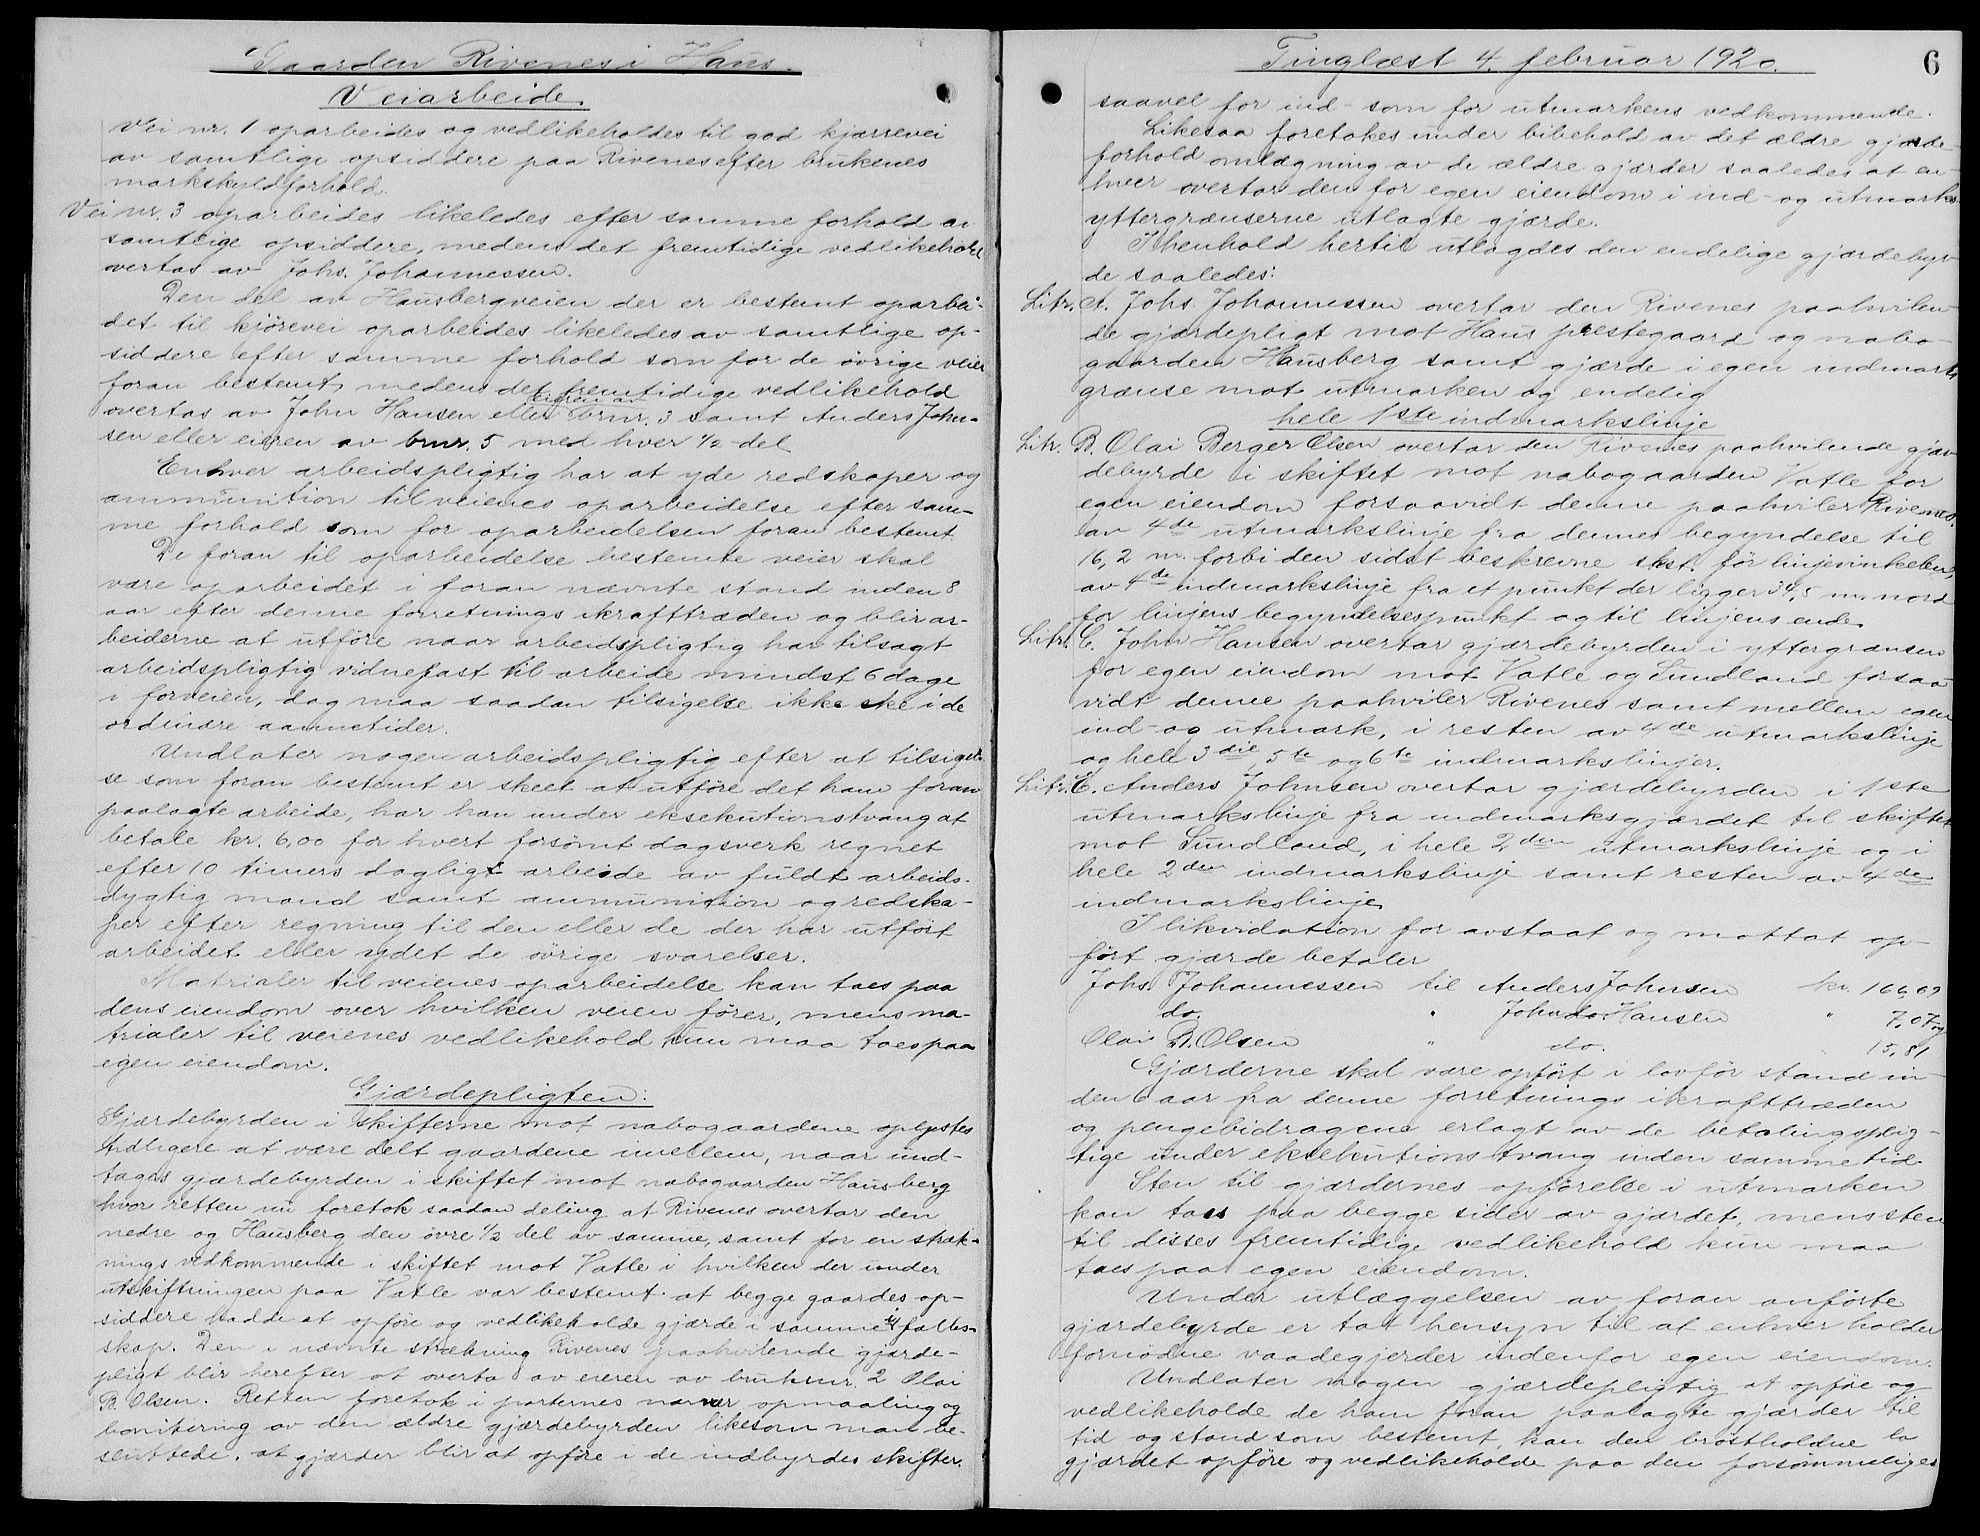 Gaarden Rivenes i Haus.
Veiarbeide.
Vei nr. 1 oparbeides og vedlikeholdes til god kjærrevei
av samtlige opsiddere paa Rivenes efter brukenes
markskyldforhold.
Vei nr. 3 oparbeides likeledes efter samme forhold av
samtlige opsiddere, medens det fremtidige vedlikehold
overtas av Johs. Johannessen.
Den del av Hausbergveien der er bestemt oparbei-
det til kjörevei oparbeides likeledes av samtlige op-
siddere efter samme forhold som for de övrige veier
foran bestemt, medens det fremtidige vedlikehold
eieren av
overtas av John Hansen eller brnr. 3 samt Anders John-
sen eller eieren av brnr. 5 med hver 1/2-del
Enhver arbeidspligtig har at yde redskaper og
ammunition til veienes oparbeidelse efter sam-
me forhold som for oparbeidelsen foran bestemt.
De foran til oparbeidelse bestemte veier skal
være oparbeidet i foran nævnte stand inden 8
aar efter denne forretnings ikrafttræden og blir ar-
beiderne at utföre naar arbeidspligtig har tilsagt
arbeidspligtig vidnefast til arbeide mindst 6 dage
i forveien, dog maa saadan tilsigelse ikke ske i de
ordinære aannetider.
Undlater nogen arbeidspligtig efter at tilsigel-
se som foran bestemt er skeet at utföre det ham foran
paalagte arbeide, har han under eksekutionstvang at
betale kr. 6,00 for hvert forsömt dagsverk regnet
efter 10 timers dagligt arbeide av fuldt arbeids-
dygtig mand samt ammunition og redska-
per efter regning til den eller de der har utfört
arbeidet eller ydet de övrige svarelser.
Matrialer til veienes oparbeidelse kan taes paa
dens eiendom over hvilken veien förer, mens ma-
trialer til veienes vedlikehold kun maa taes paa
egen eiendom.
Gjærdepligten:
Gjærdebyrden i skifterne mot nabogaardene oplystes
tidligere at være delt gaardene imellem, naar und-
tages gjærdebyrden i skiftet mot nabogaarden Hausberg
hvor retten nu foretok saadan deling at Rivenes overtar den
nedre og Hausberg den övre 1/2 del av samme, samt for en stræk-
nings vedkommende i skiftet mot Vatle i hvilken der under
utskiftningen paa Vatle var bestemt at begge gaardes op-
siddere hadde at opföre og vedlikeholde gjærde i samme i fælles-
skap. Den i nævnte strækning Rivenes paahvilende gjærde-
pligt blir herefter at overta av eieren av bruksnr. 2 Olai
B. Olsen. Retten foretok i parternes nærvær opmaaling og
bonitering av den ældre gjærdebyrden likesom man be-
sluttede, at gjærder blir at opföre i de indbyrdes skifter.
Tinglæst 4. februar 1920.
6
saavel for ind- som for utmarkens vedkommende.
Likesaa foretokes under bibehold av det ældre gjærde-
forhold omlægning av de ældre gjærder saaledes at en-
hver overtar den for egen eiendom i ind- og utmarks
yttergrænserne utlagte gjærde.
I henhold hertil utlagdes den endelige gjærdebyr-
de saaledes:
Litr. A. Johs. Johannessen overtar den Rivenes paahvilen-
de gjærdepligt mot Haus prestegaard og nabo-
gaarden Hausberg samt gjærde i egen indmarks
grænse mot utmarken og endelig
hele 1ste indmarkslinje
Litr. B. Olai Berger Olsen overtar den Rivenes paahvilende gjær-
debyrde i skiftet mot nabogaarden Vatle for
egen eiendom forsaavidt denne paahviler Rivenes,
av 4de utmarkslinje fra dennes begyndelse til
16,2 m. forbi den sidst beskrevne skst. för linjevinkelen,
av 4de indmarkslinje fra et punkt der ligger 34,5 m. nord
for linjens begyndelsespunkt og til linjens ende.
Litr. C. John Hansen overtar gjærdebyrden i yttergrænsen
for egen eiendom mot Vatle og Sundland forsaa-
vidt denne paahviler Rivenes samt mellem egen
ind- og utmark, i resten av 4de utmarkslinje
og hele 3die, 5te og 6te indmarkslinjer.
Litr. E. Anders Johnsen overtar gjærdebyrden i 1ste
utmarkslinje fra indmarksgjærdet til skiftet
mot Sundland, i hele 2den utmarkslinje og i
hele 2den indmarkslinje samt resten av 4de
indmarkslinje.
I likvidation for avstaat og mottat op-
fört gjærde betaler
Johs. Johannessen til Anders Johnsen kr. 166,09
do. " John Hansen " 7,07 og
Olai B. Olsen " do. " 15,81
Gjærderne skal være opfört i lovför stand in-
den 6 aar fra denne forretnings ikrafttræden
og pengebidragene erlagt av de betalingsplig-
tige under eksekutionstvang inden samme tid.
Sten til gjærdernes opförelse i utmarken
kan taes paa begge sider av gjærdet, mens sten
til disses fremtidige vedlikehold kun maa
taes paa egen eiendom.
Under utlæggelsen av foran anförte
gjærdebyrde er tat hensyn til at enhver holder
fornödne vaadegjerder indenfor egen eiendom.
Undlater nogen gjærdepligtig at opföre og
vedlikeholde de ham foran paalagte gjærder til
tid og stand som bestemt, kan den bröstholdne la
gjærdet opföre og vedlikeholde paa den forsömmeliges